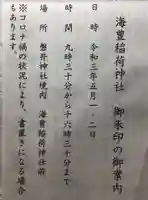 海豊稲荷神社　御朱印の御案内
日　時　令和三年五月一・二日
時　間　九時三十分から十六時三十分まで
場　所　盤井神社境内　海豊稲荷神社前
※コロナ禍の状況により、書置きになる場合
もあります。